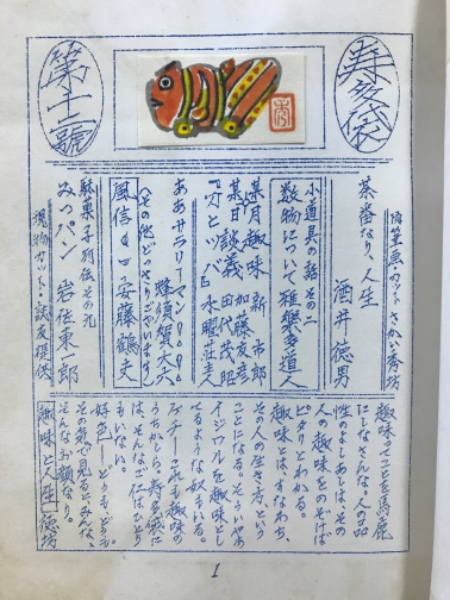 寿多袋
第十二號
肉筆画・カット さかい秀坊
茶番なり、人生 酒井徳男
小道具の話 その二
敵物について 雅樂多道人
某月某日 趣味談義 新市郎 加藤友彦 田代茂昭
『穴とツバ』水曜荘主人
ああサラリーマン 蜂須賀大六
(その他どっさりございます)
風信 安藤鶴夫
駄菓子列伝 その九
みっパン 岩佐東一郎
現物カット・誌友提供
趣味ってことを馬鹿
にしなさんな。人品
性のよしあしは、その
人の趣味をのぞけば
ピタリとわかる。
趣味とは、すなわち、
その人の生き方、という
ことになる。そういやあ
イジワルを趣味とし
てるような奴もいる。
ケチ――これも趣味の
うちかしら。寿多袋に
は、そんなご仁はひとり
もいない。
好色――どうも、どうも。
その気で見ると、みんな、
そんなお顔なり。
趣味と人生 徳坊
1